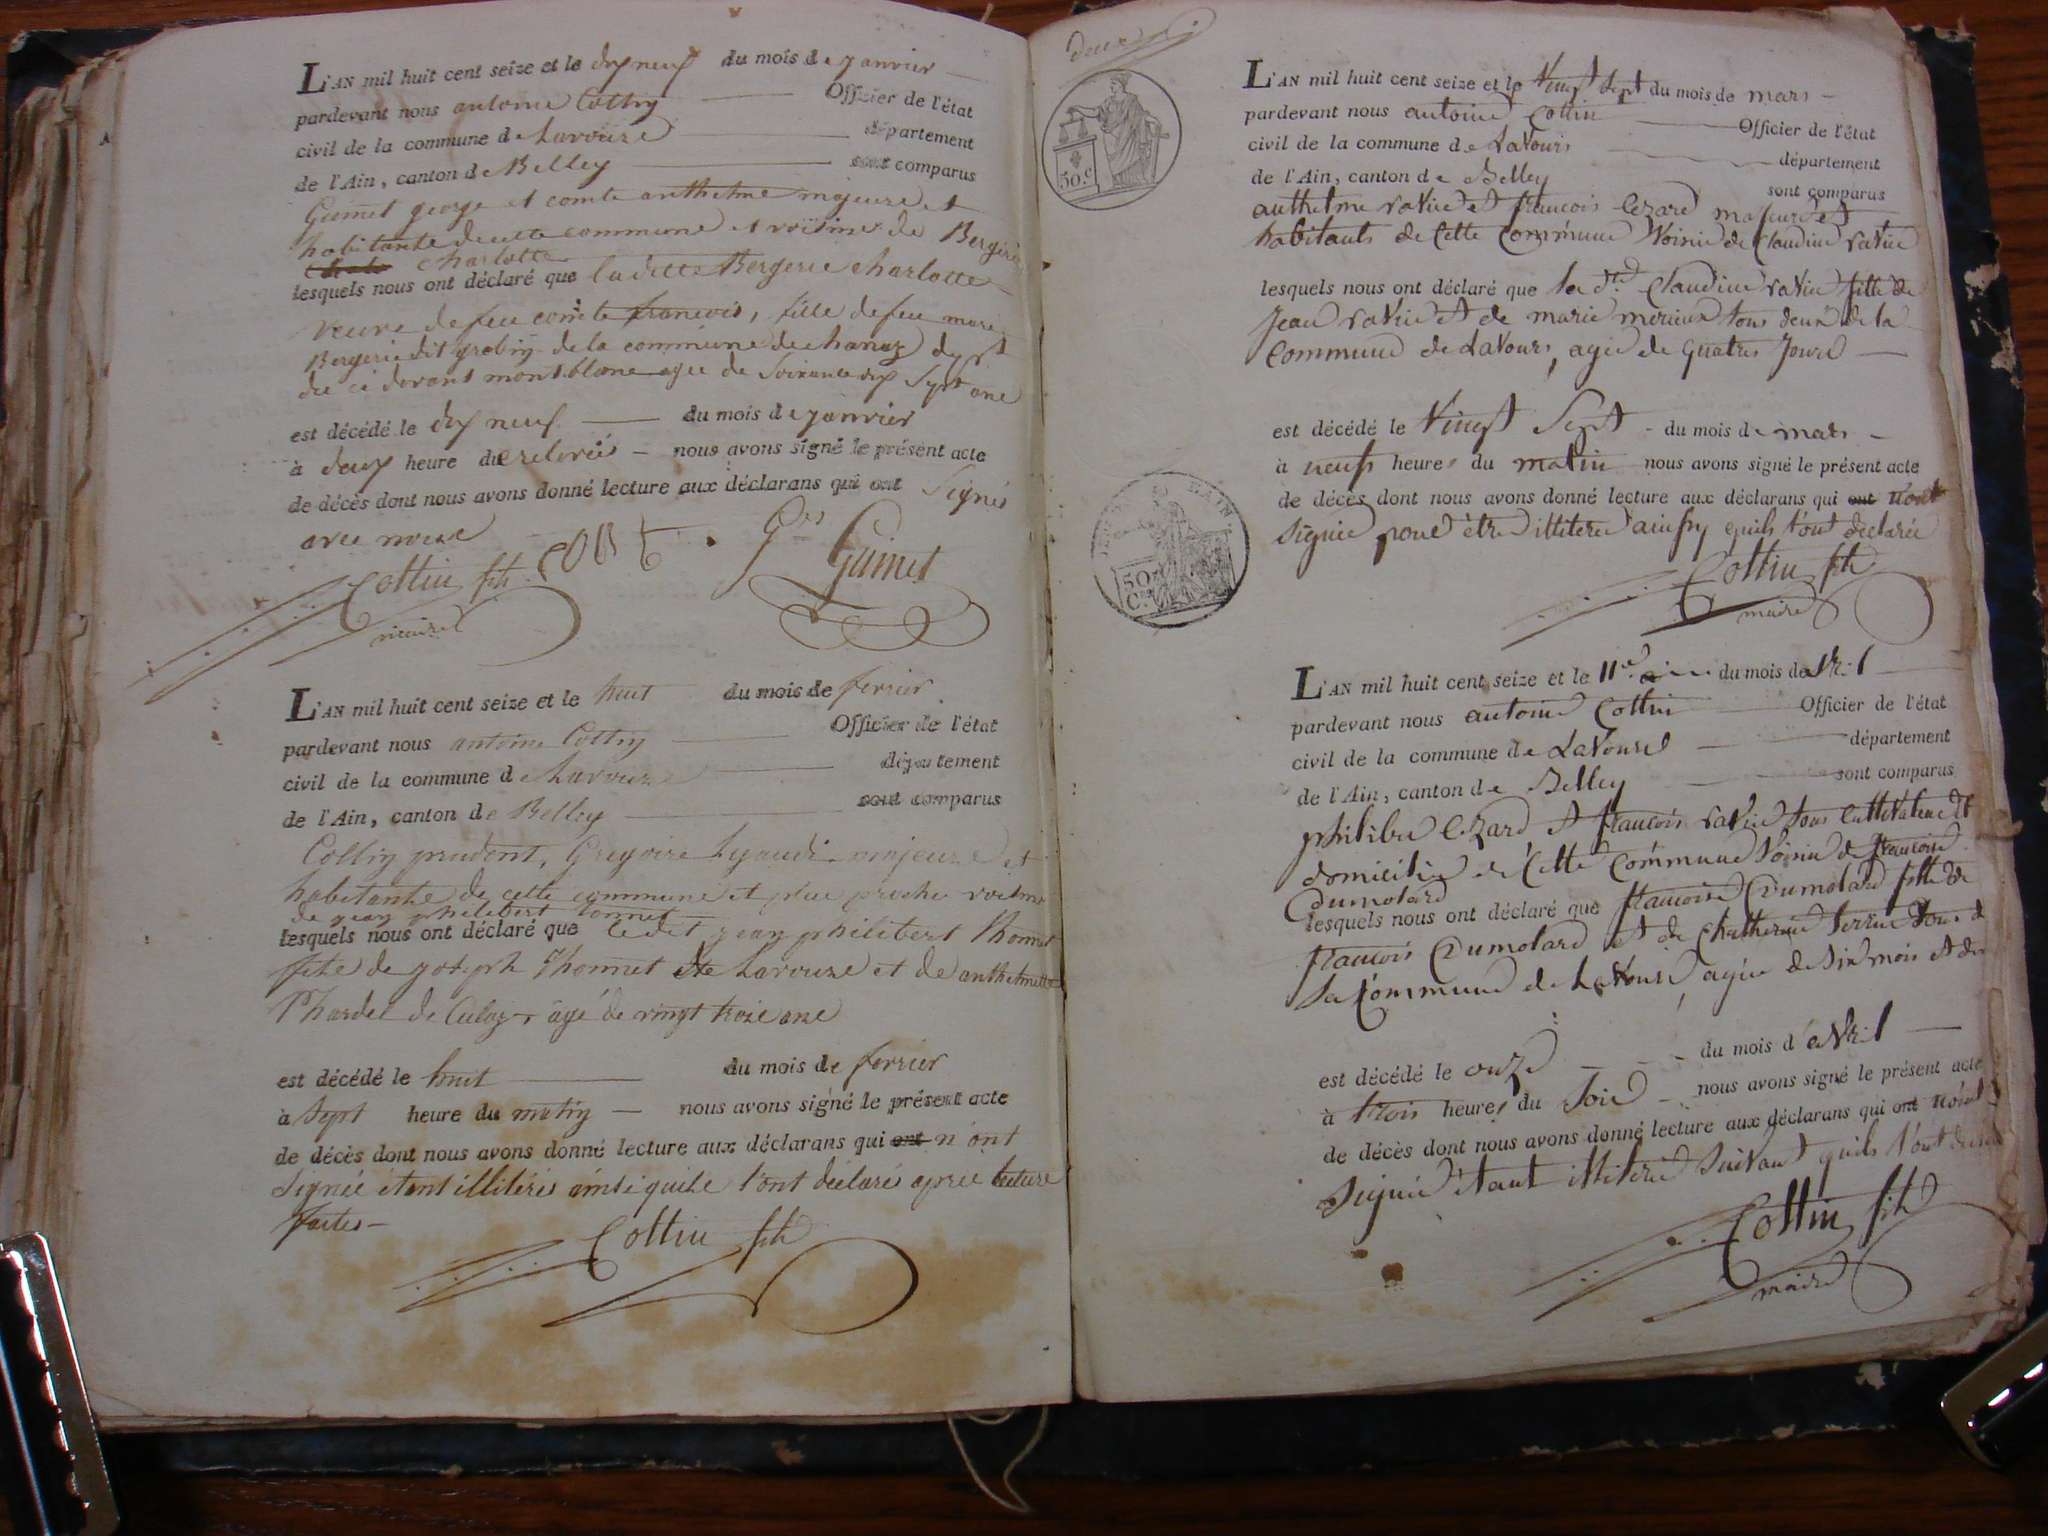 L'AN mil huit cent seize et le dix neuf du mois de janvier
pardevant nous antoine Cottin Officier de l'état
civil de la commune de Lavoure département
de l'Ain, canton de Belley sont comparus
Guimet george et comte anthelme majeurs et
habitants de cette commune et voisins de Bergerie
charlotte
lesquels nous ont déclaré que la ditte Bergerie charlotte
veuve de feu comte francois, fille de feu marc
Bergerie dit de la commune de chanaz dept
du ci devant montblanc agee de Soixante dix Sept ans
est décédé le dix neuf du mois de janvier
à deux heure du nous avons signé le présent acte
de décès dont nous avons donné lecture aux déclarans qui ont Signés
avec nous
Cottin fils G Guimet
maire
L'AN mil huit cent seize et le huit du mois de fevrier
pardevant nous antoine Cottin Officier de l'état
civil de la commune de Lavoure département
de l'Ain, canton de Belley sont comparus
Cottin prudent, Gregoire majeurs et
habitants de cette commune et plus proche voisins
de jean philibert tonnet
lesquels nous ont déclaré que le dit jean philibert Thonnet
fils de joseph Thonnet de Lavoure et de anthelmette
de Culoz agé de vingt trois ans
est décédé le huit du mois de fevrier
à Sept heure du matin nous avons signé le présent acte
de décès dont nous avons donné lecture aux déclarans qui ont n'ont
Signée étant illitérés ainsi quils l'ont déclaré après lecture
faites
Cottin fils
L'AN mil huit cent seize et le Vingt Sept du mois de mars
pardevant nous antoine Cottin Officier de l'état
civil de la commune de LaVours département
de l'Ain, canton de Belley sont comparus
anthelme raVier et francois Cezard majeurs et
habitants de Cette Commune Voisin de Claudine raVier
lesquels nous ont déclaré que la dte Claudine raVier fille de
Jean raVier et de marie tous deux de la
Commune de LaVours, agée de Quatre Jours
est décédé le Vingt Sept du mois de mars
à neuf heures du matin nous avons signé le présent acte
de décès dont nous avons donné lecture aux déclarans qui ont n'ont
Signée pour être illitéré ainsy quils l'ont declarée
Cottin fils
maire
50.c
50
C.es
L'AN mil huit cent seize et le 11e du mois de
pardevant nous antoine Cottin Officier de l'état
civil de la commune de LaVours département
de l'Ain, canton de Belley sont comparus
philiber Cezard et francois raVier tous Cultivateur et
domicilié de Cette Commune Voisin de francoise
Dumolard
lesquels nous ont déclaré que francoise Dumolard fille de
francois Dumolard et de Chatherine tous de
la Commune de LaVours, agée de Six mois et demi
est décédé le onze du mois d'aVril
à trois heures du Soir nous avons signé le présent acte
de décès dont nous avons donné lecture aux déclarans qui ont n'ont
Signée étant illitéré Suivant quils l'ont
Cottin fils
maire